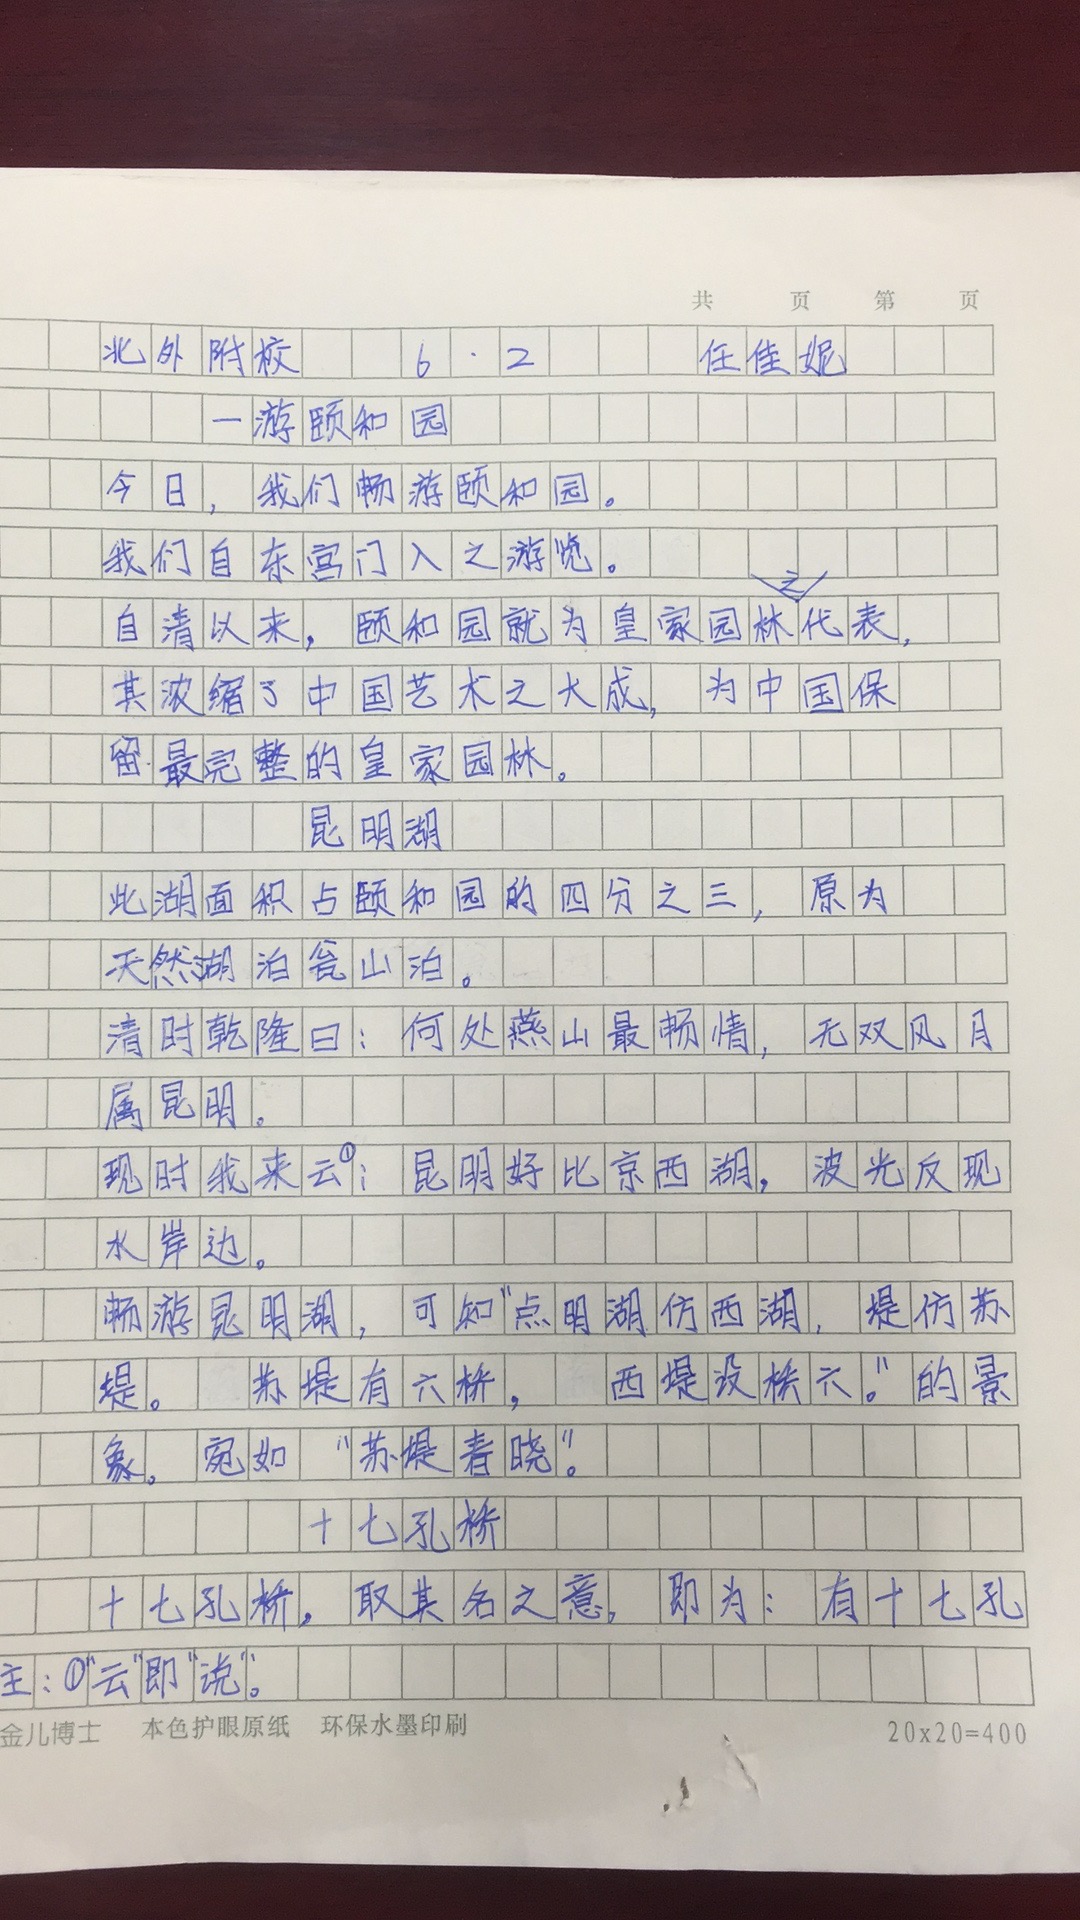 共 页 第 页
北外附校 6·2 任佳妮
一游颐和园
今日，我们畅游颐和园。
我们自东宫门入之游览。
自清以来，颐和园就为皇家园林之代表，
其浓缩了中国艺术之大成，为中国保
留最完整的皇家园林。
昆明湖
此湖面积占颐和园的四分之三，原为
天然湖泊瓮山泊。
清时乾隆曰：何处燕山最畅情，无双风月
属昆明。
现时我来云①：昆明好比京西湖，波光反现
水岸边。
畅游昆明湖，可知“点明湖仿西湖，堤仿苏
堤。 苏堤有六桥， 西堤设桥六。”的景
象。宛如“苏堤春晓”。
十七孔桥
十七孔桥，取其名之意，即为：有十七孔
主：①“云”即“说”。
金儿博士 本色护眼原纸 环保水墨印刷 20x20=400